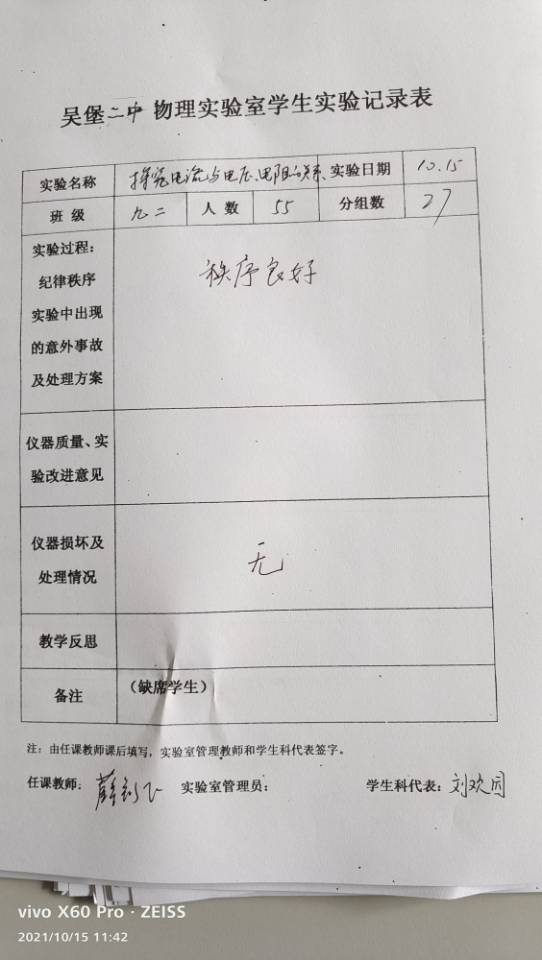 吴堡二中物理实验室学生实验记录表
实验名称 探究电流与电压、电阻的关系 实验日期 10.15
班级 九二 人数 55 分组数 27
实验过程：
纪律秩序
实验中出现
的意外事故
及处理方案
秩序良好
仪器质量、实
验改进意见
仪器损坏及
处理情况
无
教学反思
备注 （缺席学生）
注：由任课教师课后填写，实验室管理教师和学生科代表签字。
任课教师： 薛 实验室管理员： 学生科代表：刘欢
vivo X60 Pro · ZEISS
2021/10/15 11:42